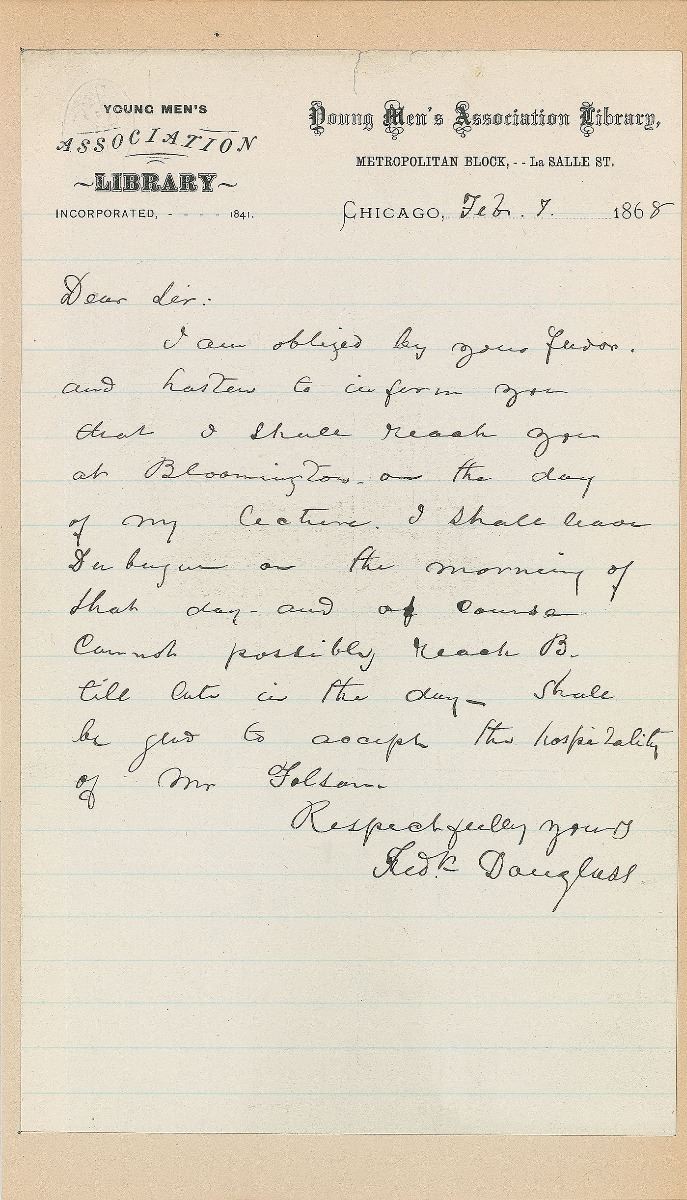 YOUNG MEN'S
ASSOCIATION
LIBRARY
INCORPORATED, - - - - 1841.
Young Men's Association Library,
METROPOLITAN BLOCK, - - La SALLE ST.
CHICAGO, Feb. 7. 1868
Dear Sir:
I am obliged by your favor.
and hasten to inform you
that I shall reach you
at Bloomington on the day
of my lecture. I shall leave
Dubuque on the morning of
that day - and of course
Cannot possibly reach B.
till late in the day - Shall
be glad to accept the hospitality
of Mr Folsom
Respectfully yours
Fredk Douglass